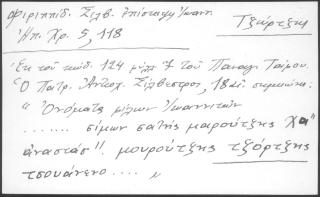 Φιριππίδ. Σιλβ. ἐπίσκεψ Ἰωανν.
Ἠπ. Χρ. 5, 118
Τζώρτζης
Ἐκ τοῦ κώδ. 124 τοῦ Παναγ. Τάφου.
Ὁ Πατρ. Ἀντιοχ. Σίλβεστρος, 18αι σημειώνει:
"Ὀνόματα φίλων Ἰωαννιτῶν
....... σίμων σατής μαρούτζης χα"
ἀναστάσ". μουρούτζης τζώρτζης
τσουάνενο .... "